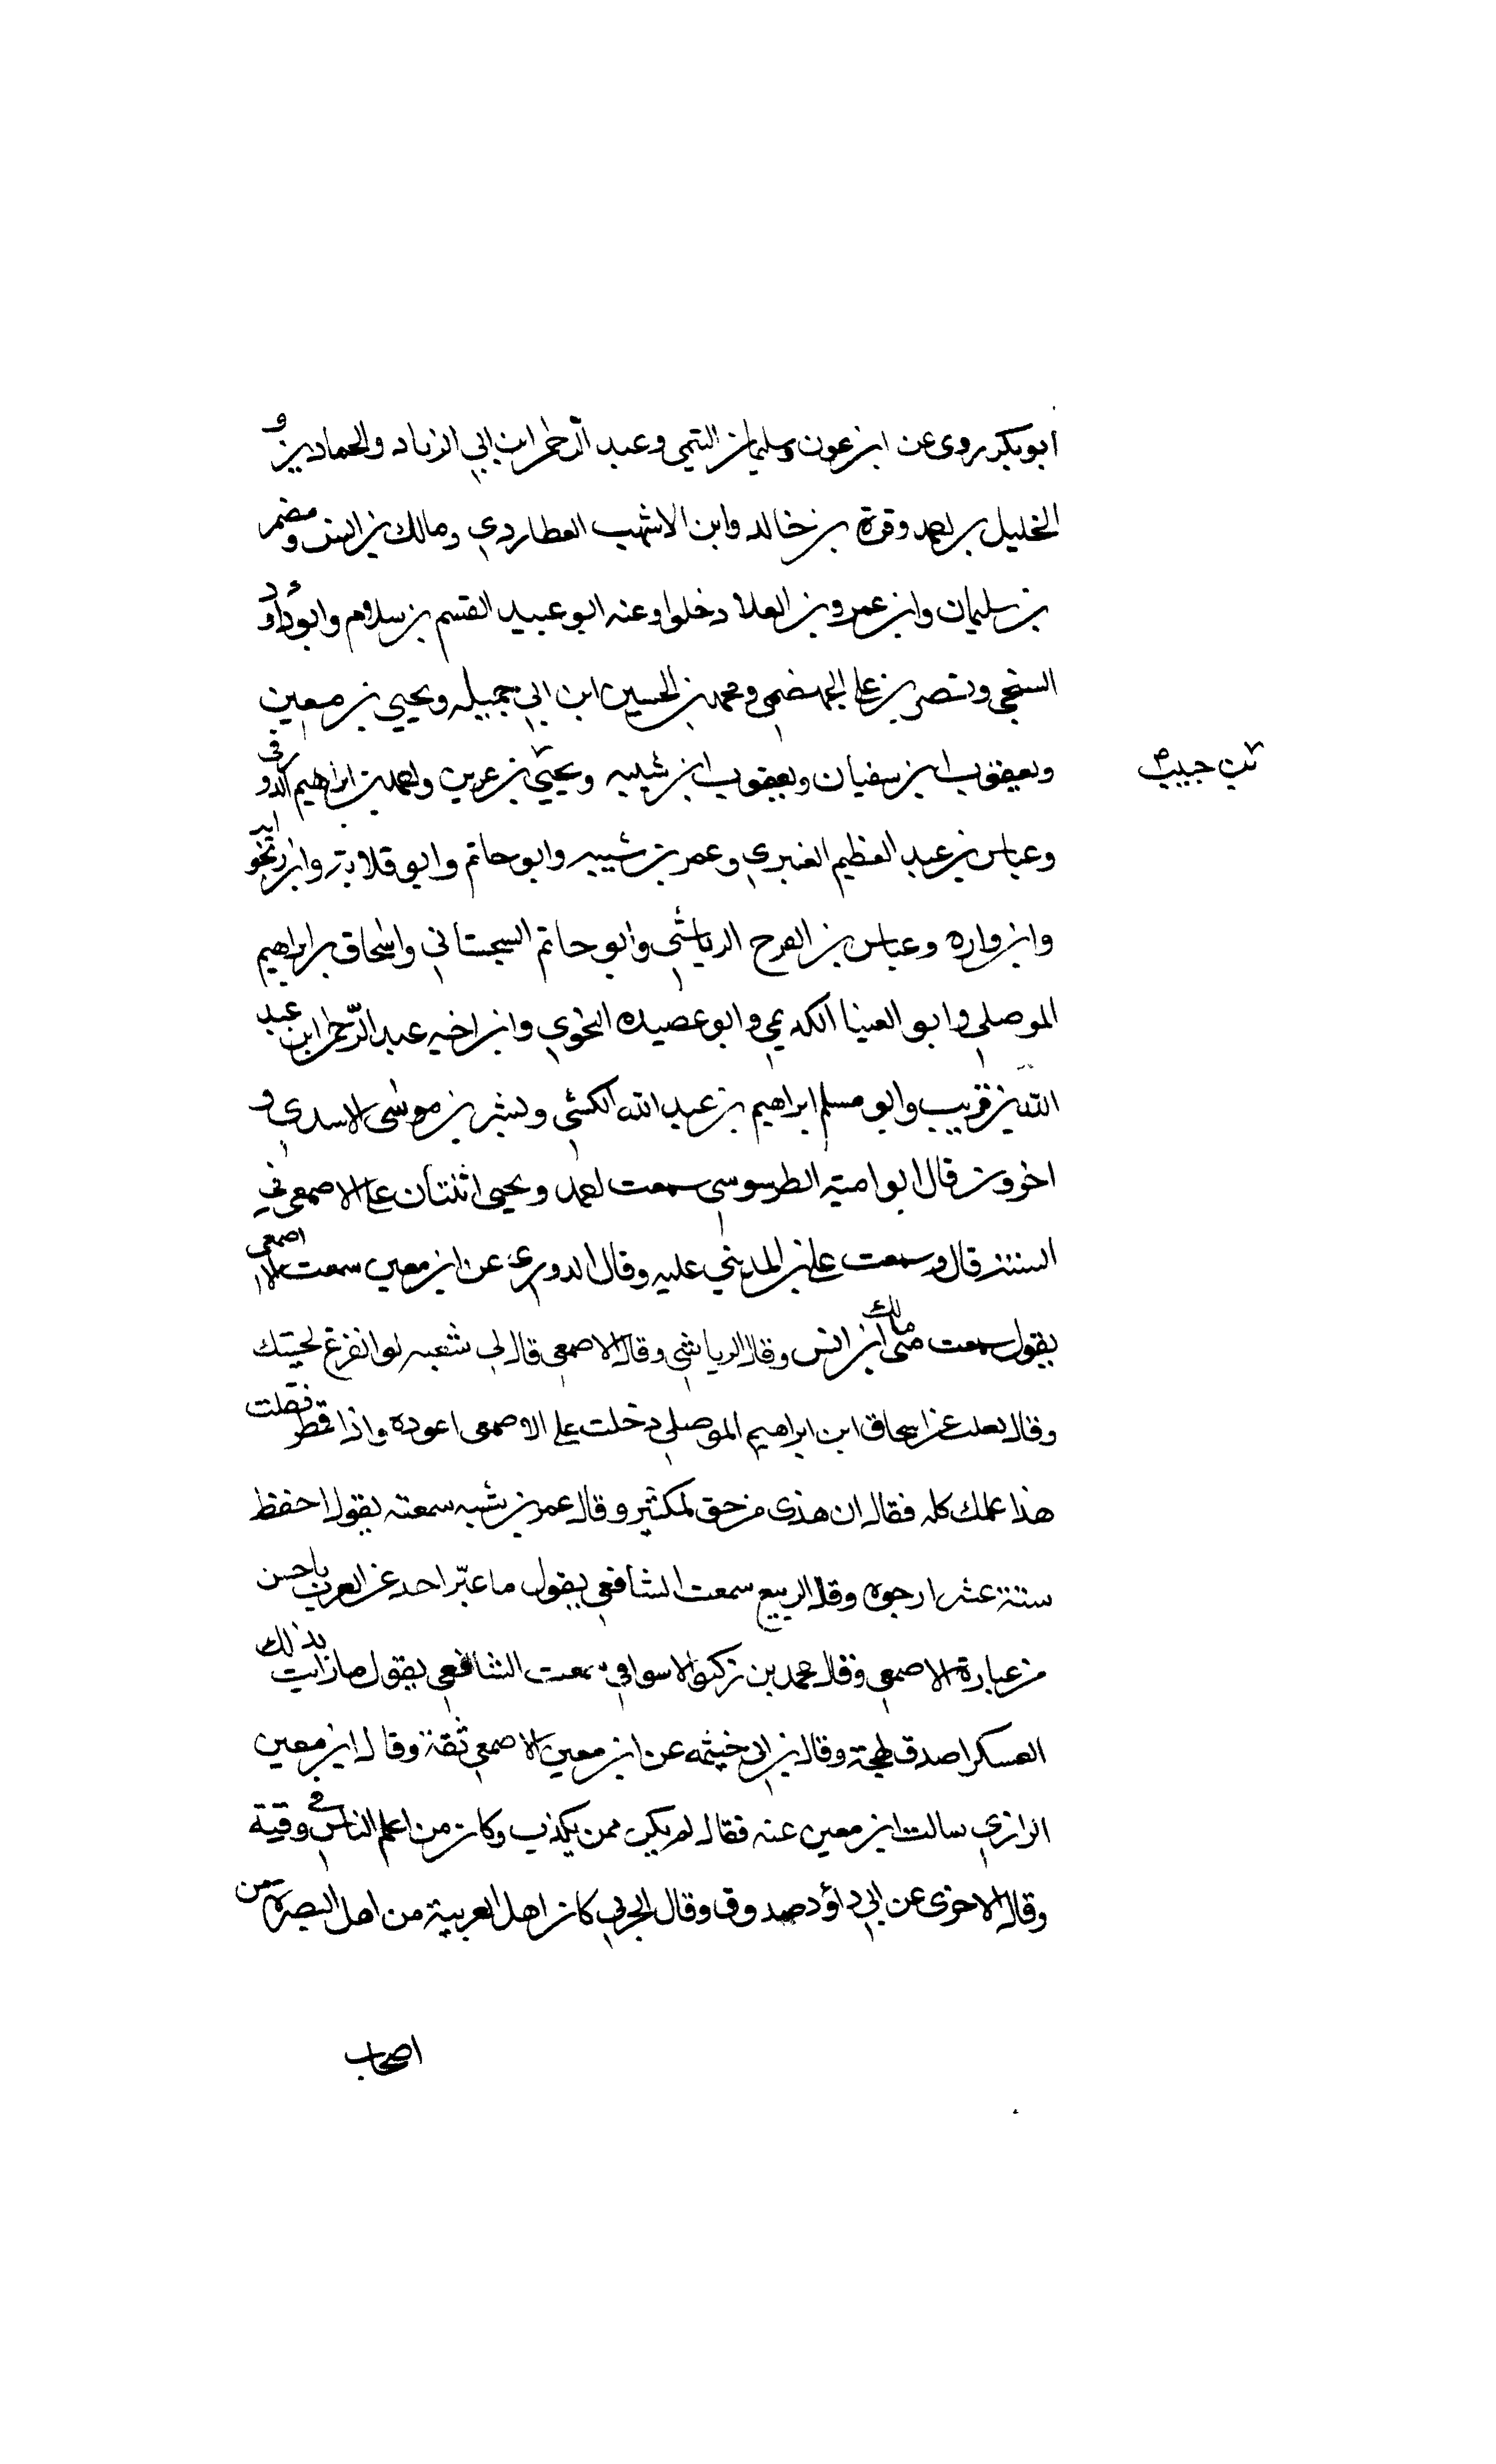 ابو بكر روى عن ابن عون وسليمان التيمي وعبد الرحمن ابن ابي الزناد والحمادين و
الخليل بن احمد وقرة بن خالد وابن الاشهب العطاردي ومالك بن انس ومضمر
بن سليمان وابن عمرو بن العلا دخلوا وعنه ابو عبيد القسم بن سلام وابو داؤد
السنجي ونصر بن علي الجهضمي ومحمد بن الحسين ابن ابي جميله ويحيى بن معين
ويعقوب ابن سفيان ويعقوب ابن شيبه ويحيى بن عربن واحمد بن ابراهيم الدورقى
بن حبيب
وعباس بن عبد العظيم العنبري وعمر بن شيبه وابو حاتم وابو قلابة وابن
وابن واره وعباس بن الفرح الرياشي وابو حاتم السجستاني واسحاق بن ابراهيم
الموصلي وابو العينا الكديمي وابو عصيده النحوي وابن اخيه عبد الرحمن ابن عبد
الله بن قريب وابو مسلم ابراهيم بن عبد الله الكشي وبشر بن موسى الاسدي و
اخرون قال ابو امية الطرسوسي سمعت احمد ويحيى اثنتان على الاصمعي في
السنة قال وسمعت علي بن المديني عليه وقال الدوري عن ابن معين سمعت الاصمعي
يقول سمعت منى مالك ابن انس وقال الرياشي وقال الاصمعي قال لي شعبه لو انفرغ لجيتك
وقال ثعلب عن اسحاق ابن ابراهيم الموصلي دخلت على الاصمعى اعوده واذا قمطر فقلت
هذا عملك كله فقال ان هذى من حق لمكثير وقال عمر بن شبه سمعته يقول احفظ
ستة عشر ارجوه وقال الربيع سمعت الشافعي يقول ما عبّر احد عن العرب باحسن
من عبارة الاصمعي وقال محمد بن زكير الاسواني سمعت الشافعي يقول ما رايت بذلك
العسكر اصدق لهجة وقال بن ابى خيثمه عن ابن معين الاصمعي ثقة وقال ابن معين
الرازي سالت ابن معين عنه فقال لم يكن ممن يكذب وكان من اعلم الناس في وقته
وقال الاخرى عن ابي داؤد صدوق وقال الحربي كان اهل العربية من اهل البصرة من
اصحاب